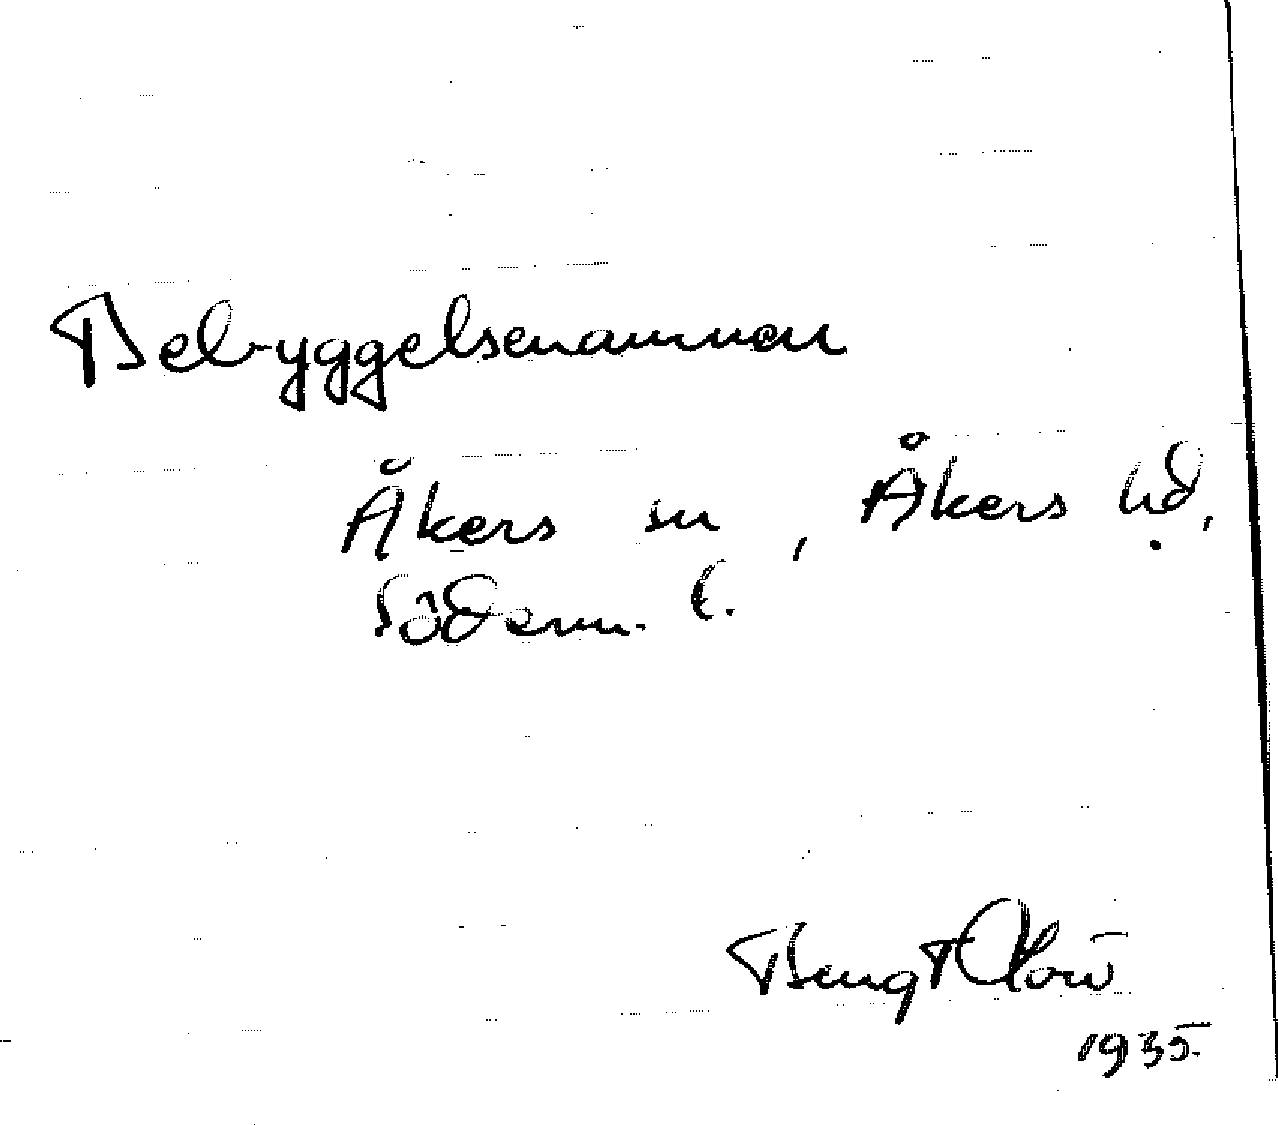 Bebyggelsenamnen
Åkers sn, Åkers hd,
Söderm. l.
Bengt
1935